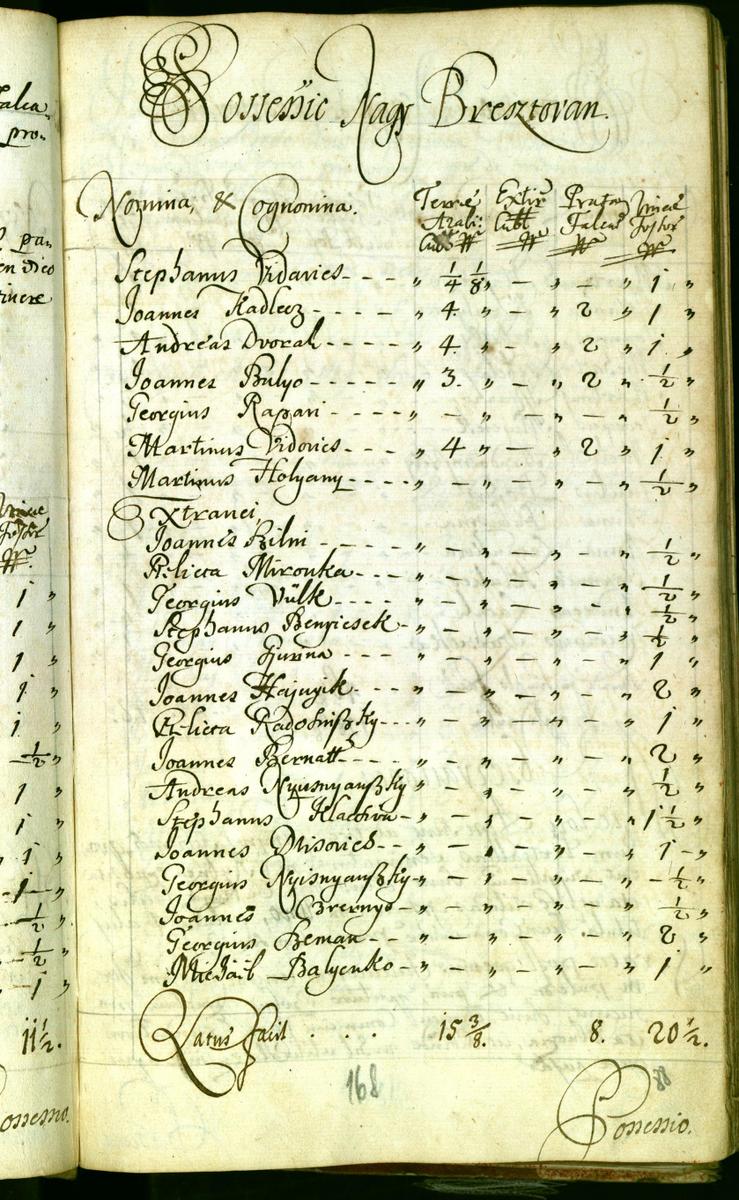 Possessio Nagy Bresztovan.
Nomina, & Cognomina. Terræ Arabi: Cub: № Extir Cubl № Prator Falcat № Vineæ Fossor №
Stephanus Vidavics - - - - „ 1/4 1/8 „ - „ - „ 1 „
Joannes Kadlecz - - - - - „ 4. „ - „ 2 „ 1 „
Andreas Dvorak - - - - „ 4. „ - „ 2 „ 1 „
Joannes Bulyo - - - - - „ 3. „ - „ 2 „ 1/2 „
Georgius Rapan - - - - „ - „ - „ - „ 1/2 „
Martinus Vidovics - - - „ 4 „ - „ 2 „ 1 „
Martinus Holyany - - - - „ - „ - „ - „ 1/2 „
Extranei
Joannes Szilni - - - - „ - „ - „ - „ 1/2 „
Relicta Mirovka - - - „ - „ - „ - „ 1/2 „
Georgius Vülk - - - - „ - „ - „ - „ 1/2 „
Stephanus Benyicsek - „ - „ - „ - „ 1/2 „
Georgius Gyurina - - - „ - „ - „ - „ 1 „
Joannes Hajnyik - - - „ - „ - „ - „ 2 „
Relicta Radosniszky - - - „ - „ - „ - „ 1 „
Joannes Bernatt - - - „ - „ - „ - „ 2 „
Andreas Nyusnyanszky „ - „ - „ - „ 1/2 „
Stephanus Klacsiva - - „ - „ - „ - „ 1 1/2 „
Joannes - - „ - „ - „ - „ 1 - „
Georgius Nyisnyanszky - „ - „ - „ - „ 1/2 „
Joannes Csernyo - „ - „ - „ - „ 1/2 „
Georgius Zeman - - „ - „ - „ - „ 2 „
Michail Balyenko - „ - „ - „ - „ 1 „
Latus facit . . . 15 3/8. 8. 20 1/2.
168 88
Possessio.